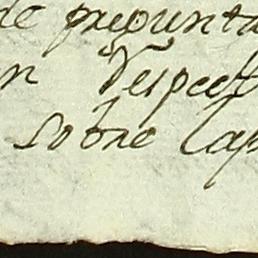 de pregunta
n Respect
sobre Lap